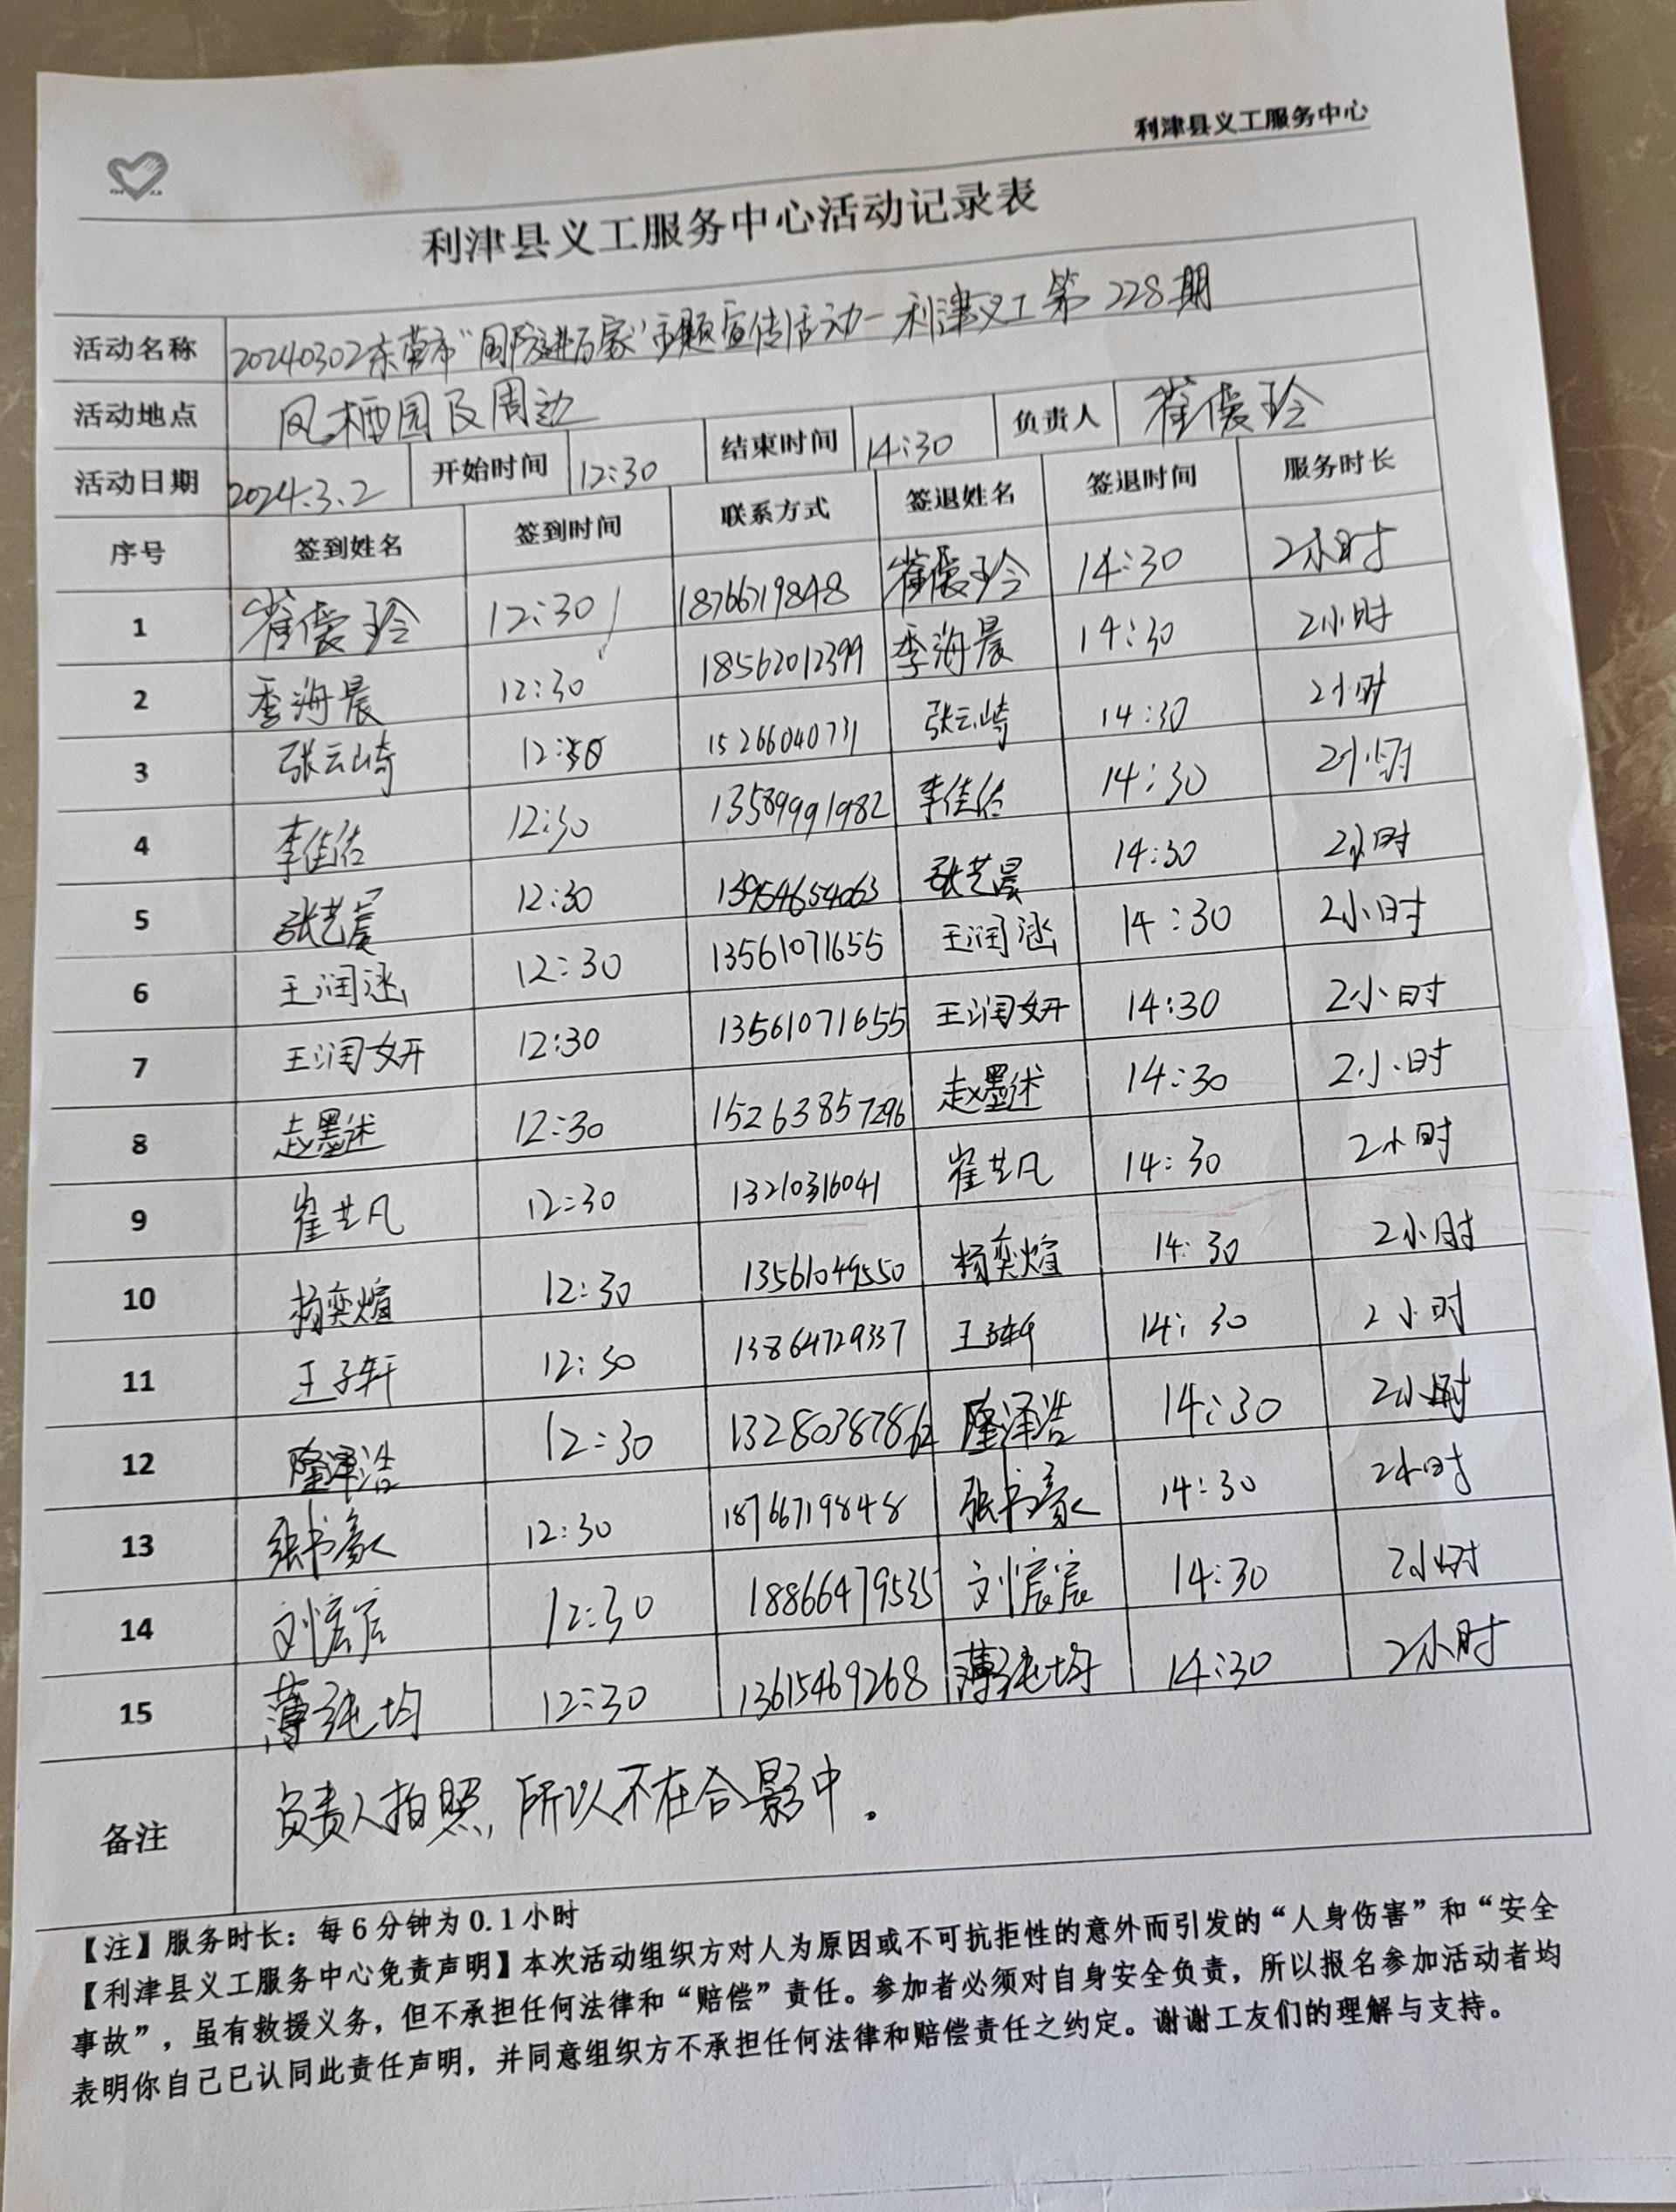 利津县义工服务中心
利津县义工服务中心活动记录表
活动名称 20240302东营市“国防进万家”主题宣传活动—利津义工第228期
活动地点 凤栖园及周边
活动日期 2024.3.2 开始时间 12:30 结束时间 14:30 负责人 崔偀玲
序号 签到姓名 签到时间 联系方式 签退姓名 签退时间 服务时长
1 崔偀玲 12:30 18766719848 崔偀玲 14:30 2小时
2 季海晨 12:30 18562012399 季海晨 14:30 2小时
3 张云崎 12:30 15266040731 张云崎 14:30 2小时
4 李佳佑 12:30 13589991982 李佳佑 14:30 2小时
5 张艺晨 12:30 13954654063 张艺晨 14:30 2小时
6 王润涵 12:30 13561071655 王润涵 14:30 2小时
7 王润妍 12:30 13561071655 王润妍 14:30 2小时
8 赵墨述 12:30 15263857296 赵墨述 14:30 2小时
9 崔芸凡 12:30 13210316041 崔芸凡 14:30 2小时
10 杨奕煊 12:30 13561049550 杨奕煊 14:30 2小时
11 王子轩 12:30 13864729337 王子轩 14:30 2小时
12 隆泽浩 12:30 132803878 隆泽浩 14:30 2小时
13 张书豪 12:30 18766719848 张书豪 14:30 2小时
14 刘宸宸 12:30 18866479535 刘宸宸 14:30 2小时
15 薄纯均 12:30 13615469268 薄纯均 14:30 2小时
备注 负责人拍照,所以不在合影中.
【注】服务时长：每6分钟为0.1小时
【利津县义工服务中心免责声明】本次活动组织方对人为原因或不可抗拒性的意外而引发的“人身伤害”和“安全
事故”，虽有救援义务，但不承担任何法律和“赔偿”责任。参加者必须对自身安全负责，所以报名参加活动者均
表明你自己已认同此责任声明，并同意组织方不承担任何法律和赔偿责任之约定。谢谢工友们的理解与支持。